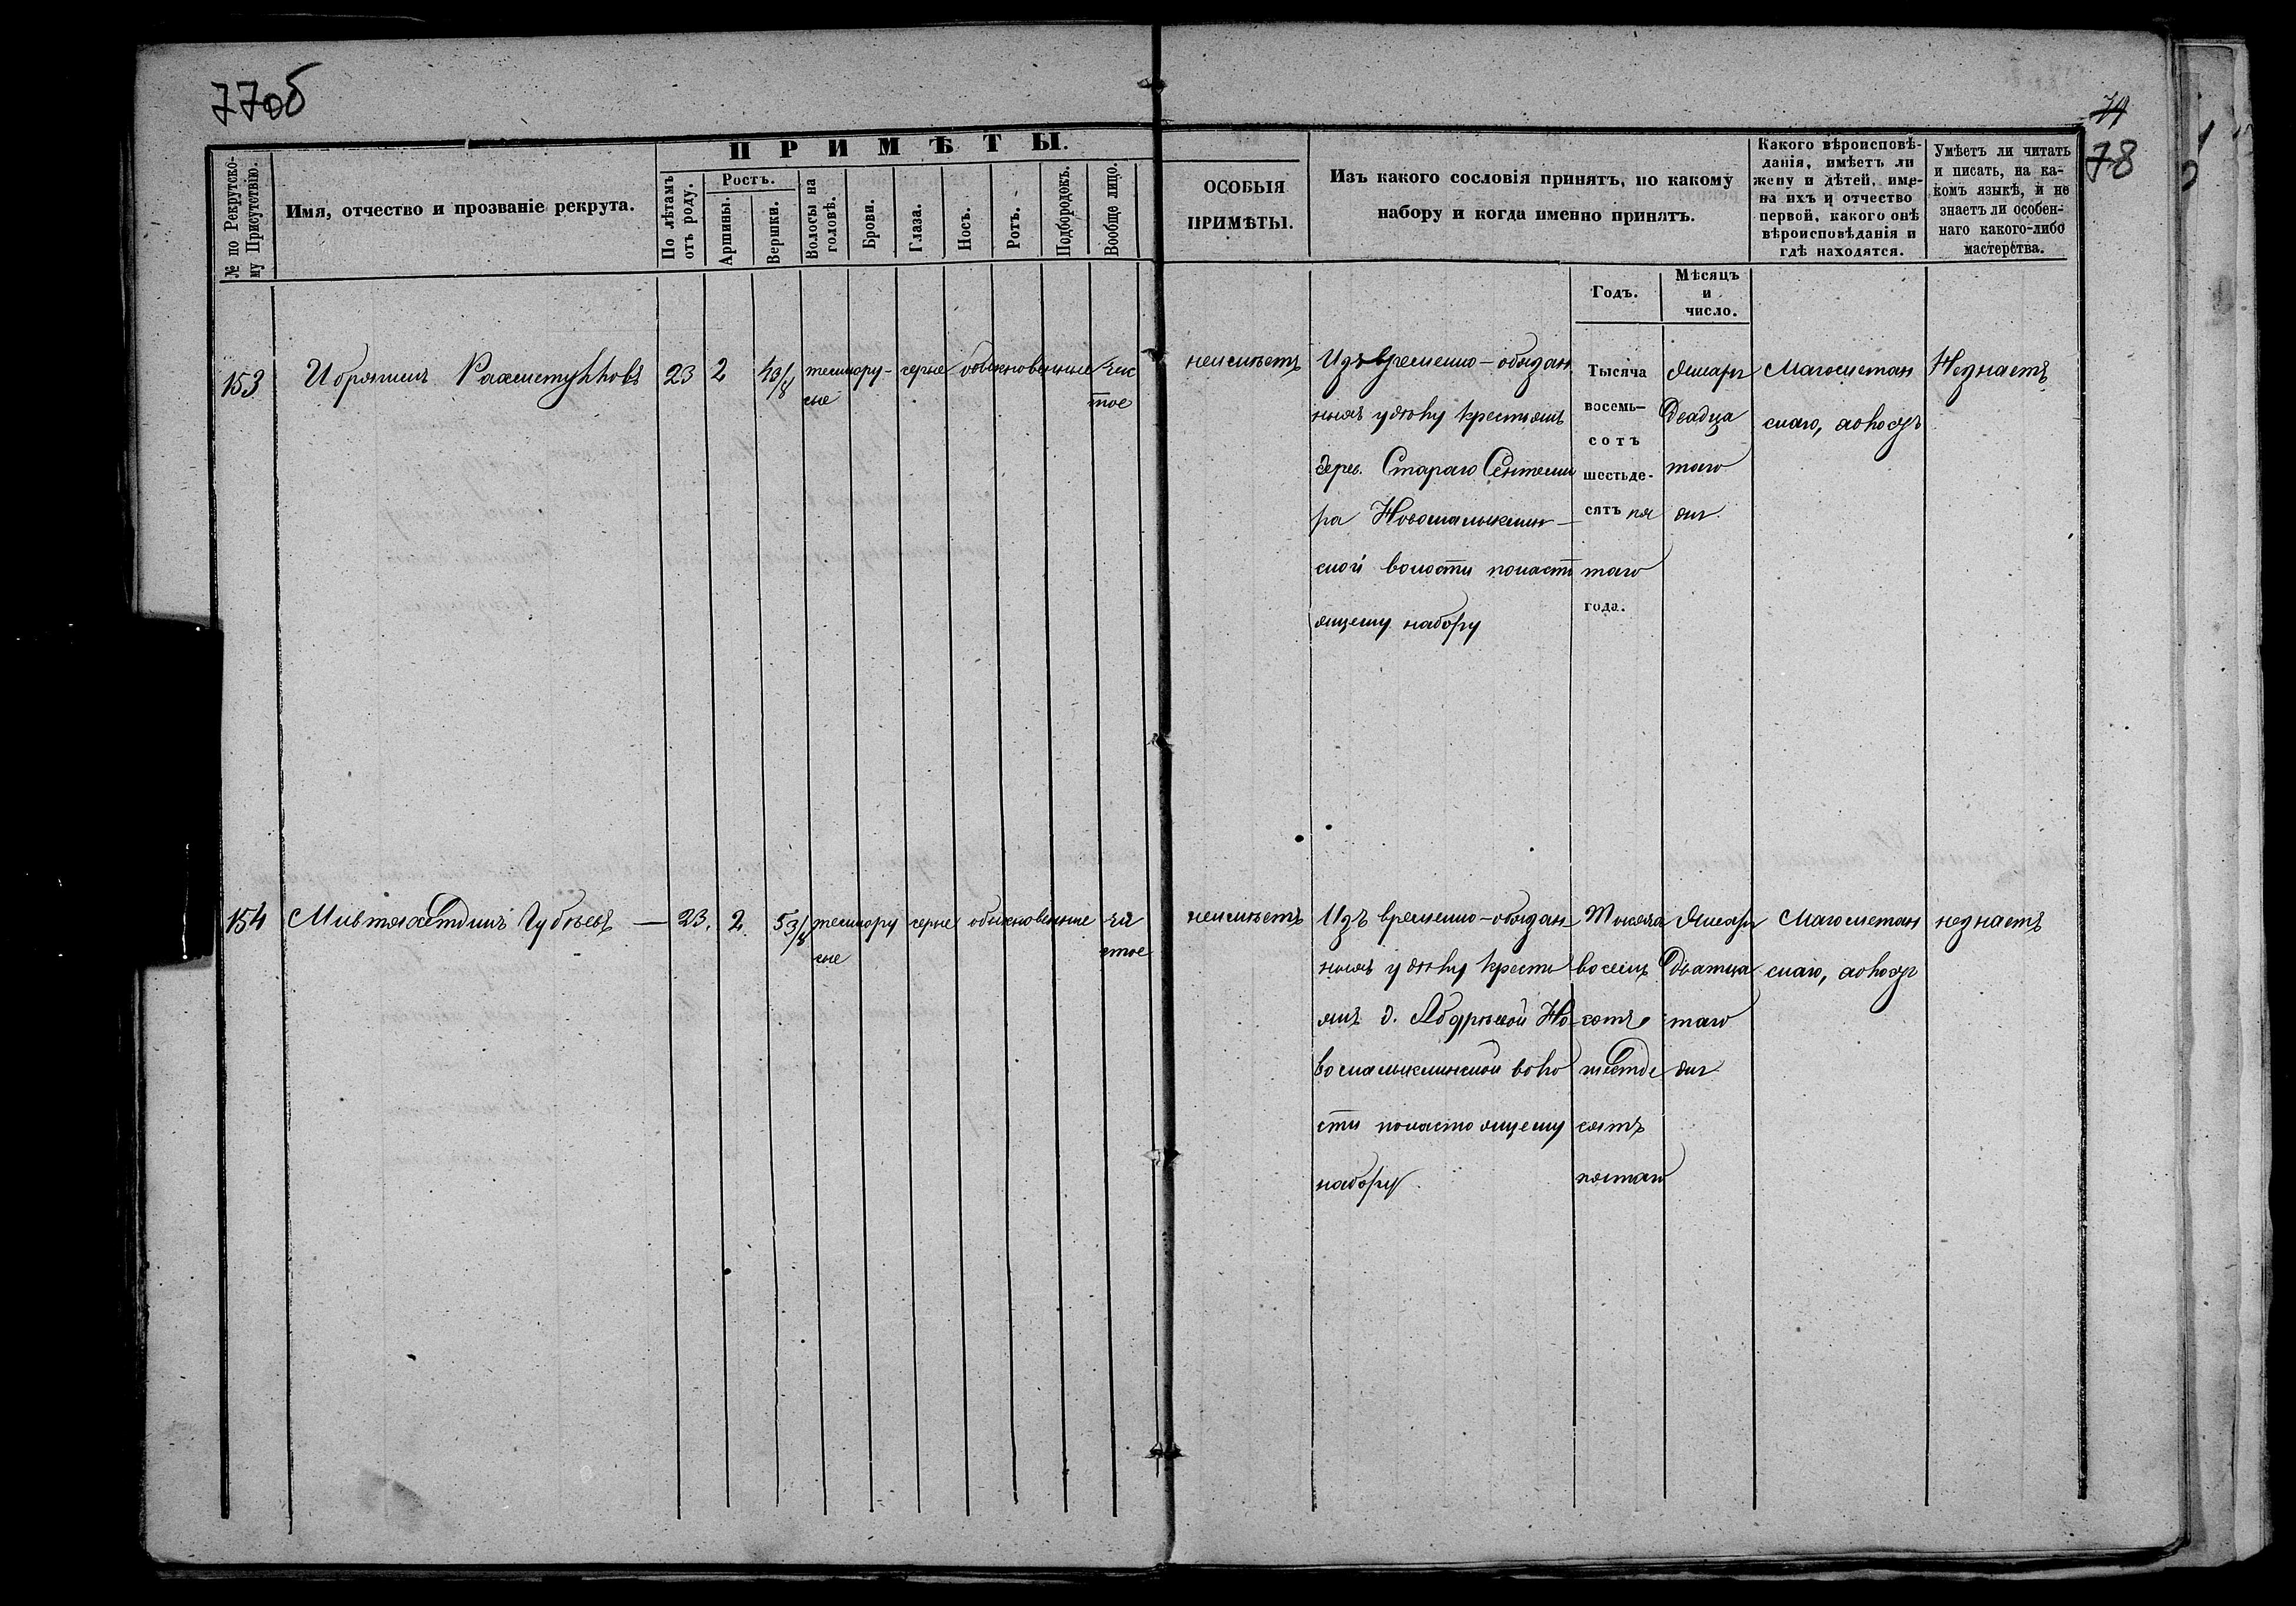 77об
74
78
ПРИМѢТЫ.
№ по Рекрутско-
му Присутствію.
Имя, отчество и прозваніе рекрута.
По лѣтамъ
отъ роду.
Ростъ.
Аршины.
Вершки.
Волосы на
головѣ.
Брови.
Глаза.
Носъ.
Ротъ.
Подбородокъ.
Вообще лицо.
ОСОБЫЯ
ПРИМѢТЫ.
Изъ какого сословія принятъ, по какому
набору и когда именно принятъ.
Какого вѣроисповѣ-
данія, имѣетъ ли
жену и дѣтей, име-
на ихъ и отчество
первой, какого онѣ
вѣроисповѣданія и
гдѣ находятся.
Умѣетъ ли читать
и писать, на ка-
комъ языкѣ, и не
знаетъ ли особен-
наго какого-либо
мастерства.
Годъ.
Мѣсяцъ
и
число.
153
Ибрягимъ Рахметулловъ
23
2
4 3/8
темнору-
сые
серые
обыкновенные
чис
тое
неимѣетъ
Изъ временно-обязан
ныхъ удѣлу крестьянъ
дерев. Стараго Сентеми
ра Новомалыклин-
ской волости понасто
ящему набору
Тысяча
восемь-
сотъ
шестьде-
сятъ пя
таго
года.
Января
Двадца
таго
дня
Магометан
скаго, холостъ
Незнаетъ
154
Мивтяхетдинъ Губѣевъ
23.
2
5 3/8
темнору
сые
серые
обыкновенные
чи
стое
неимѣетъ
Изъ временно-обязан
ныхъ удѣлу кресть
янъ д. Абдрѣевой Но
вомалыклинской воло
сти понастоящему
набору
Тысяча
восемь
сотъ
шестьде
сятъ
пятаго
Января
Дватца
таго
дня
Магометан
скаго, холостъ
незнаетъ